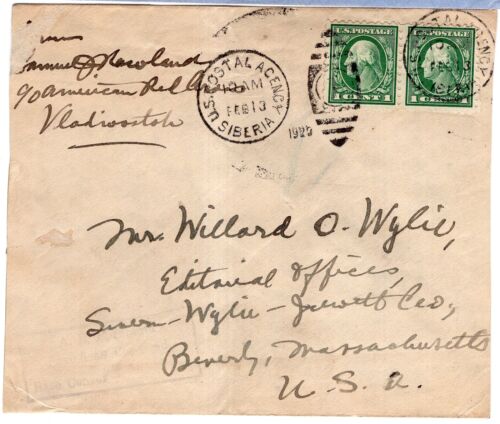 from
Samuel J Rowland
c/o American Red Cross
Vladivostok
U.S. POSTAL AGENCY
10 AM
FEB 13
1920
SIBERIA
U.S. POSTAGE
1 CENT 1
U.S. POSTAGE
1 CENT 1
POSTAL AGENCY
Mr. Willard O. Wylie,
Editorial Offices,
Severn-Wylie-Jewett Co.,
Beverly, Massachusetts
U.S.A.